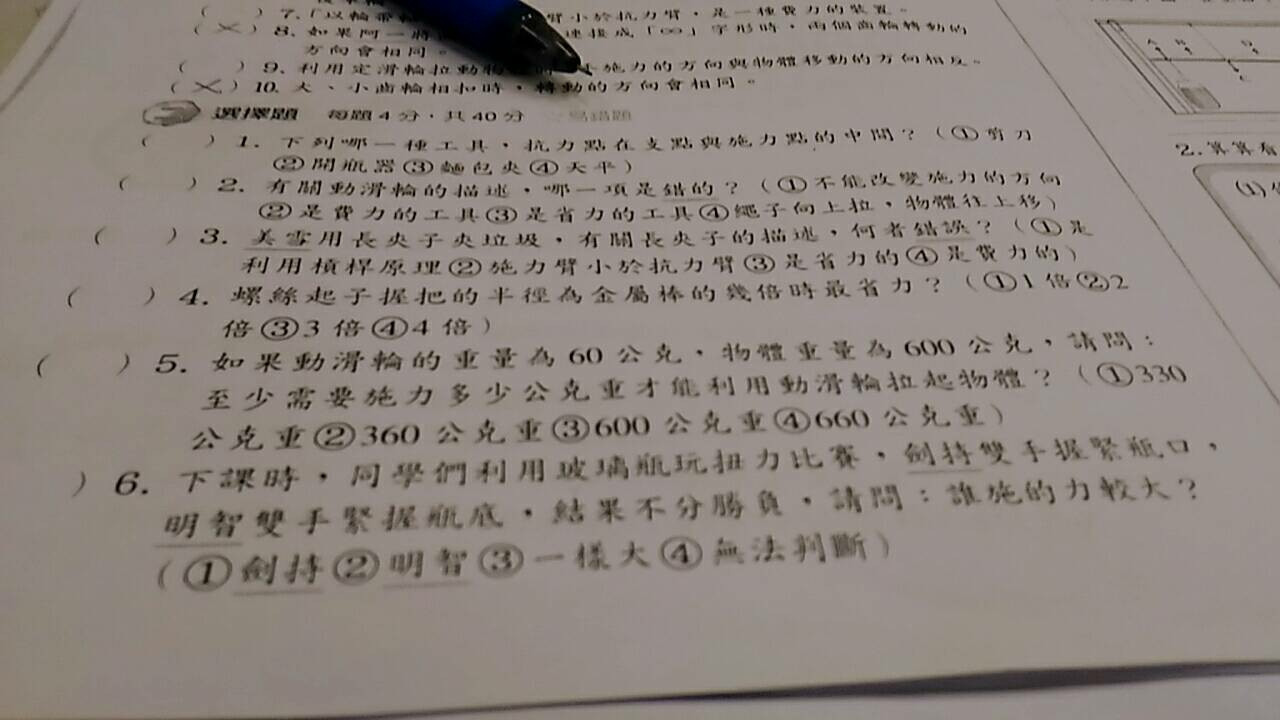 ( ) 7.「以輪帶 臂小於抗力臂，是一種費力的裝置。
(×) 8. 如果阿一將 連接成「∞」字形時，兩個齒輪轉動的
方向會相同。
( ) 9. 利用定滑輪拉動物 施力的方向與物體移動的方向相反。
(×) 10. 大、小齒輪相扣時，轉動的方向會相同。
選擇題 每題4分，共40分 易錯題
( ) 1. 下列哪一種工具，抗力點在支點與施力點的中間？（①剪刀
②開瓶器③麵包夾④天平）
( ) 2. 有關動滑輪的描述，哪一項是錯的？（①不能改變施力的方向
②是費力的工具③是省力的工具④繩子向上拉，物體往上移）
( ) 3. 美雪用長夾子夾垃圾，有關長夾子的描述，何者錯誤？（①是
利用槓桿原理②施力臂小於抗力臂③是省力的④是費力的）
( ) 4. 螺絲起子握把的半徑為金屬棒的幾倍時最省力？（①1倍②2
倍③3倍④4倍）
( ) 5. 如果動滑輪的重量為60公克，物體重量為600公克，請問：
至少需要施力多少公克重才能利用動滑輪拉起物體？（①330
公克重②360公克重③600公克重④660公克重）
) 6. 下課時，同學們利用玻璃瓶玩扭力比賽，劍持雙手握緊瓶口，
明智雙手緊握瓶底，結果不分勝負，請問：誰施的力較大？
（①劍持②明智③一樣大④無法判斷）
2. 算算看
(1)